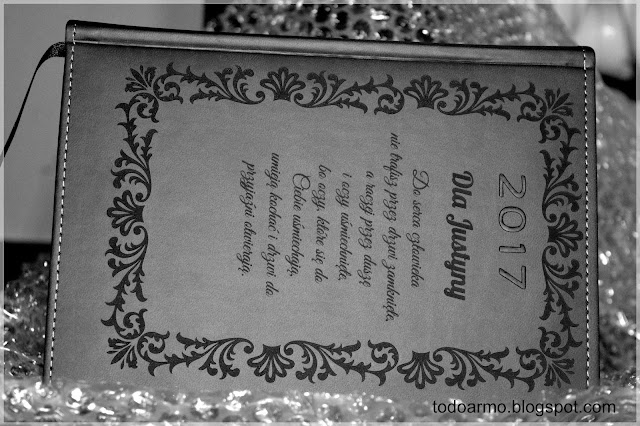 2017
Dla Justyny
Do serca człowieka
nie trafisz przez drzwi zamknięte,
a raczej przez duszę
i oczy uśmiechnięte,
bo oczy, które się do
Ciebie uśmiechają,
umieją kochać i drzwi do
przyjaźni otwierają.
todoarmo.blogspot.com